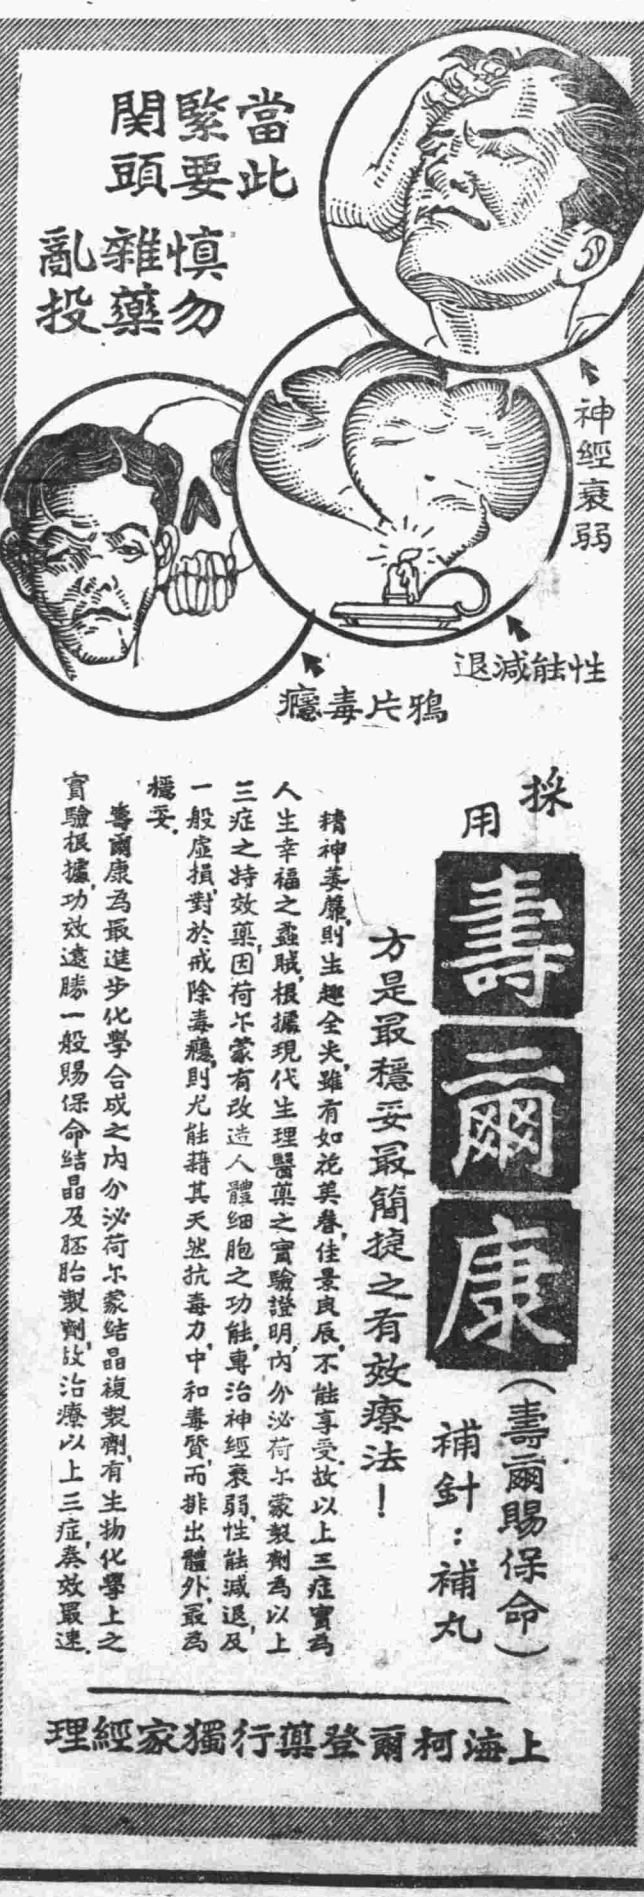 當此
緊要
関頭
慎勿
雜藥
亂投
神經衰弱
性能減退
鴉片毒癮
採用
壽爾康
(壽爾賜保命)
補針：補丸
方是最穩妥最簡捷之有效療法！
精神萎靡,則生趣全失,雖有如花美眷,佳景良辰,不能享受.故以上三症實為
人生幸福之蟊賊,根據現代生理醫藥之實驗證明,內分泌荷尔蒙製劑為以上
三症之特效藥,因荷尔蒙有改造人體細胞之功能,專治神經衰弱,性能減退,及
一般虛損,對於戒除毒癮,則尤能藉其天然抗毒力,中和毒質,而排出體外,最為
穩妥.
壽爾康為最進步化學合成之內分泌荷尔蒙結晶複製劑,有生物化學上之
實驗根據,功效遠勝一般賜保命結晶及胚胎製劑,故治療以上三症,奏效最速.
上海柯爾登藥行獨家經理